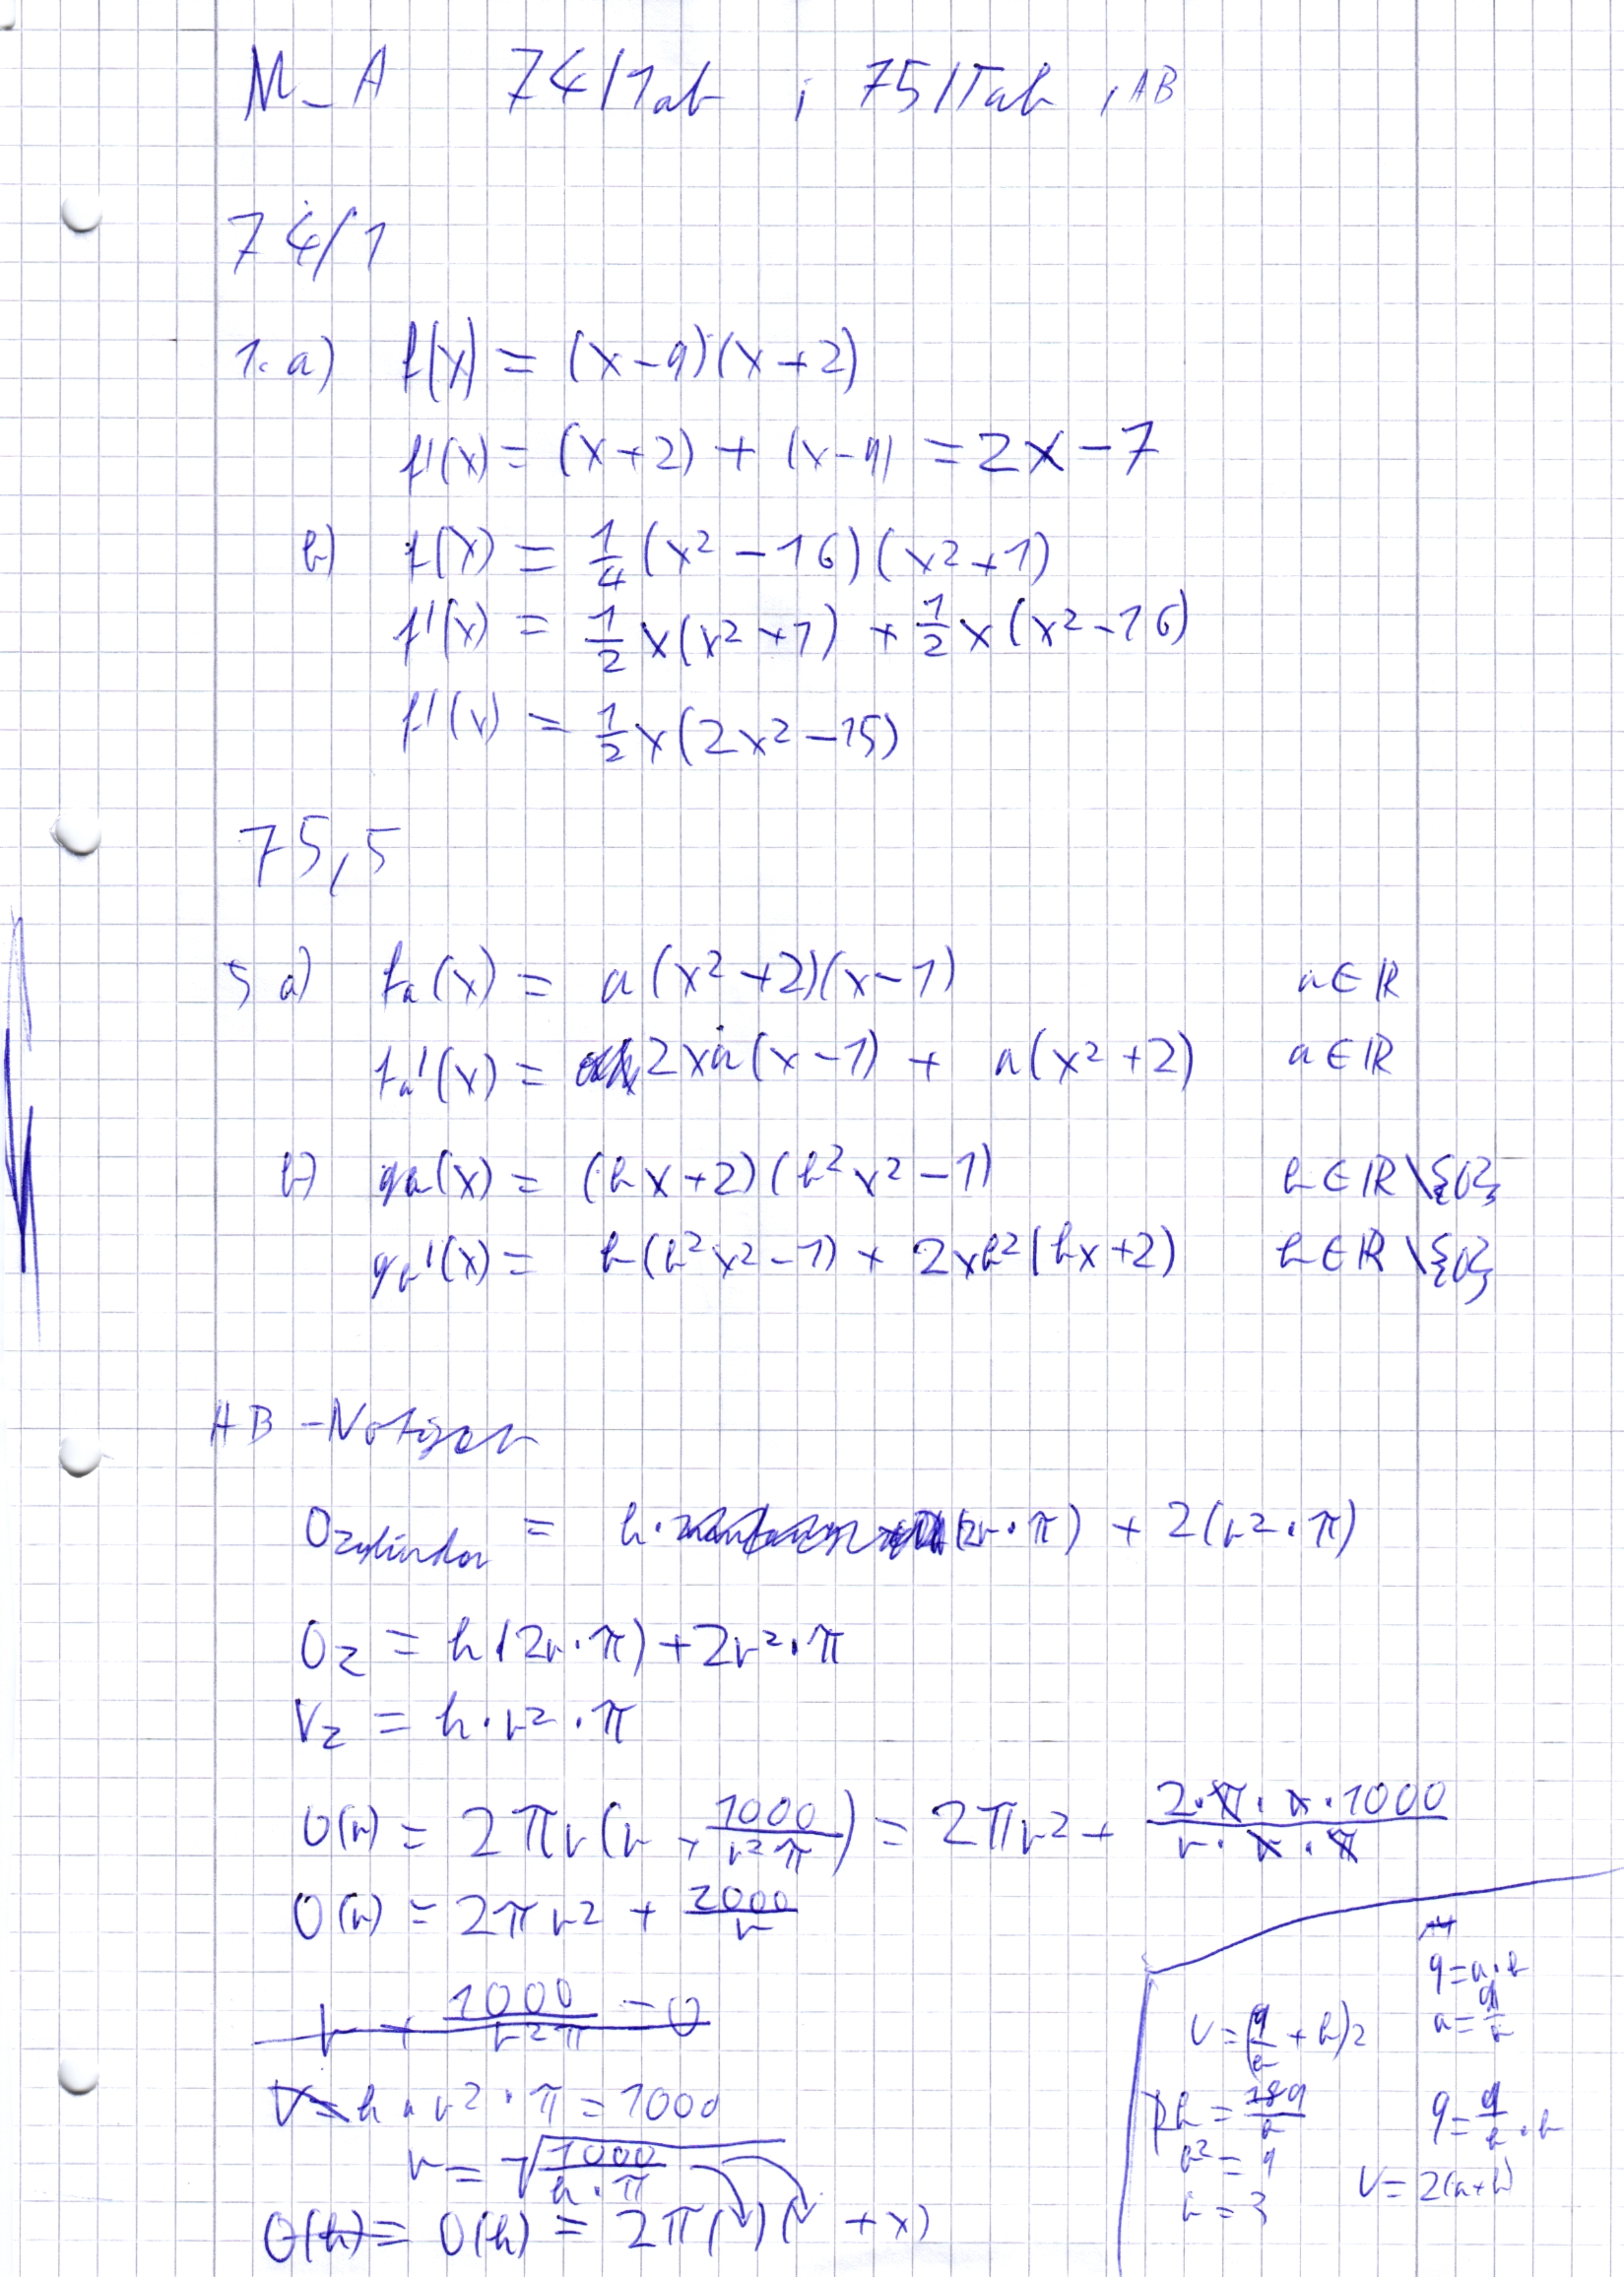 M_A 74/1ab ; 75/5ab , AB
74/1
1. a) f(x) = (x-9)(x+2)
f'(x) = (x+2) + (x-9) = 2x-7
b) f(x) = 1/4 (x² - 16)(x²+1)
f'(x) = 1/2 x(x²+1) + 1/2 x(x²-16)
f'(x) = 1/2 x(2x²-15)
75,5
5 a) fa(x) = a(x²+2)(x-1) a∈ℝ
fa'(x) = 2xa(x-1) + a(x²+2) a∈ℝ
b) gb(x) = (bx+2)(b²x²-1) b∈ℝ\{0}
gb'(x) = b(b²x²-1) + 2xb²(bx+2) b∈ℝ\{0}
AB-Notizen
Ozylinder = h·(2r·π) + 2(r²·π)
Oz = h(2r·π)+2r²·π
Vz = h·r²·π
O(r) = 2πr(r + 1000/r²π) = 2πr² + 2·π·r·1000/r·r·π
O(r) = 2πr² + 2000/r
r + 1000/r²π = 0
V=h·r²·π = 1000
r = √1000/h·π
O(h)= O(h) = 2π( )( +x)
9=a·b
a=9/b
U=(9/b+b)2
9=9/b·b
b²=9
b=3
U=2(a+b)